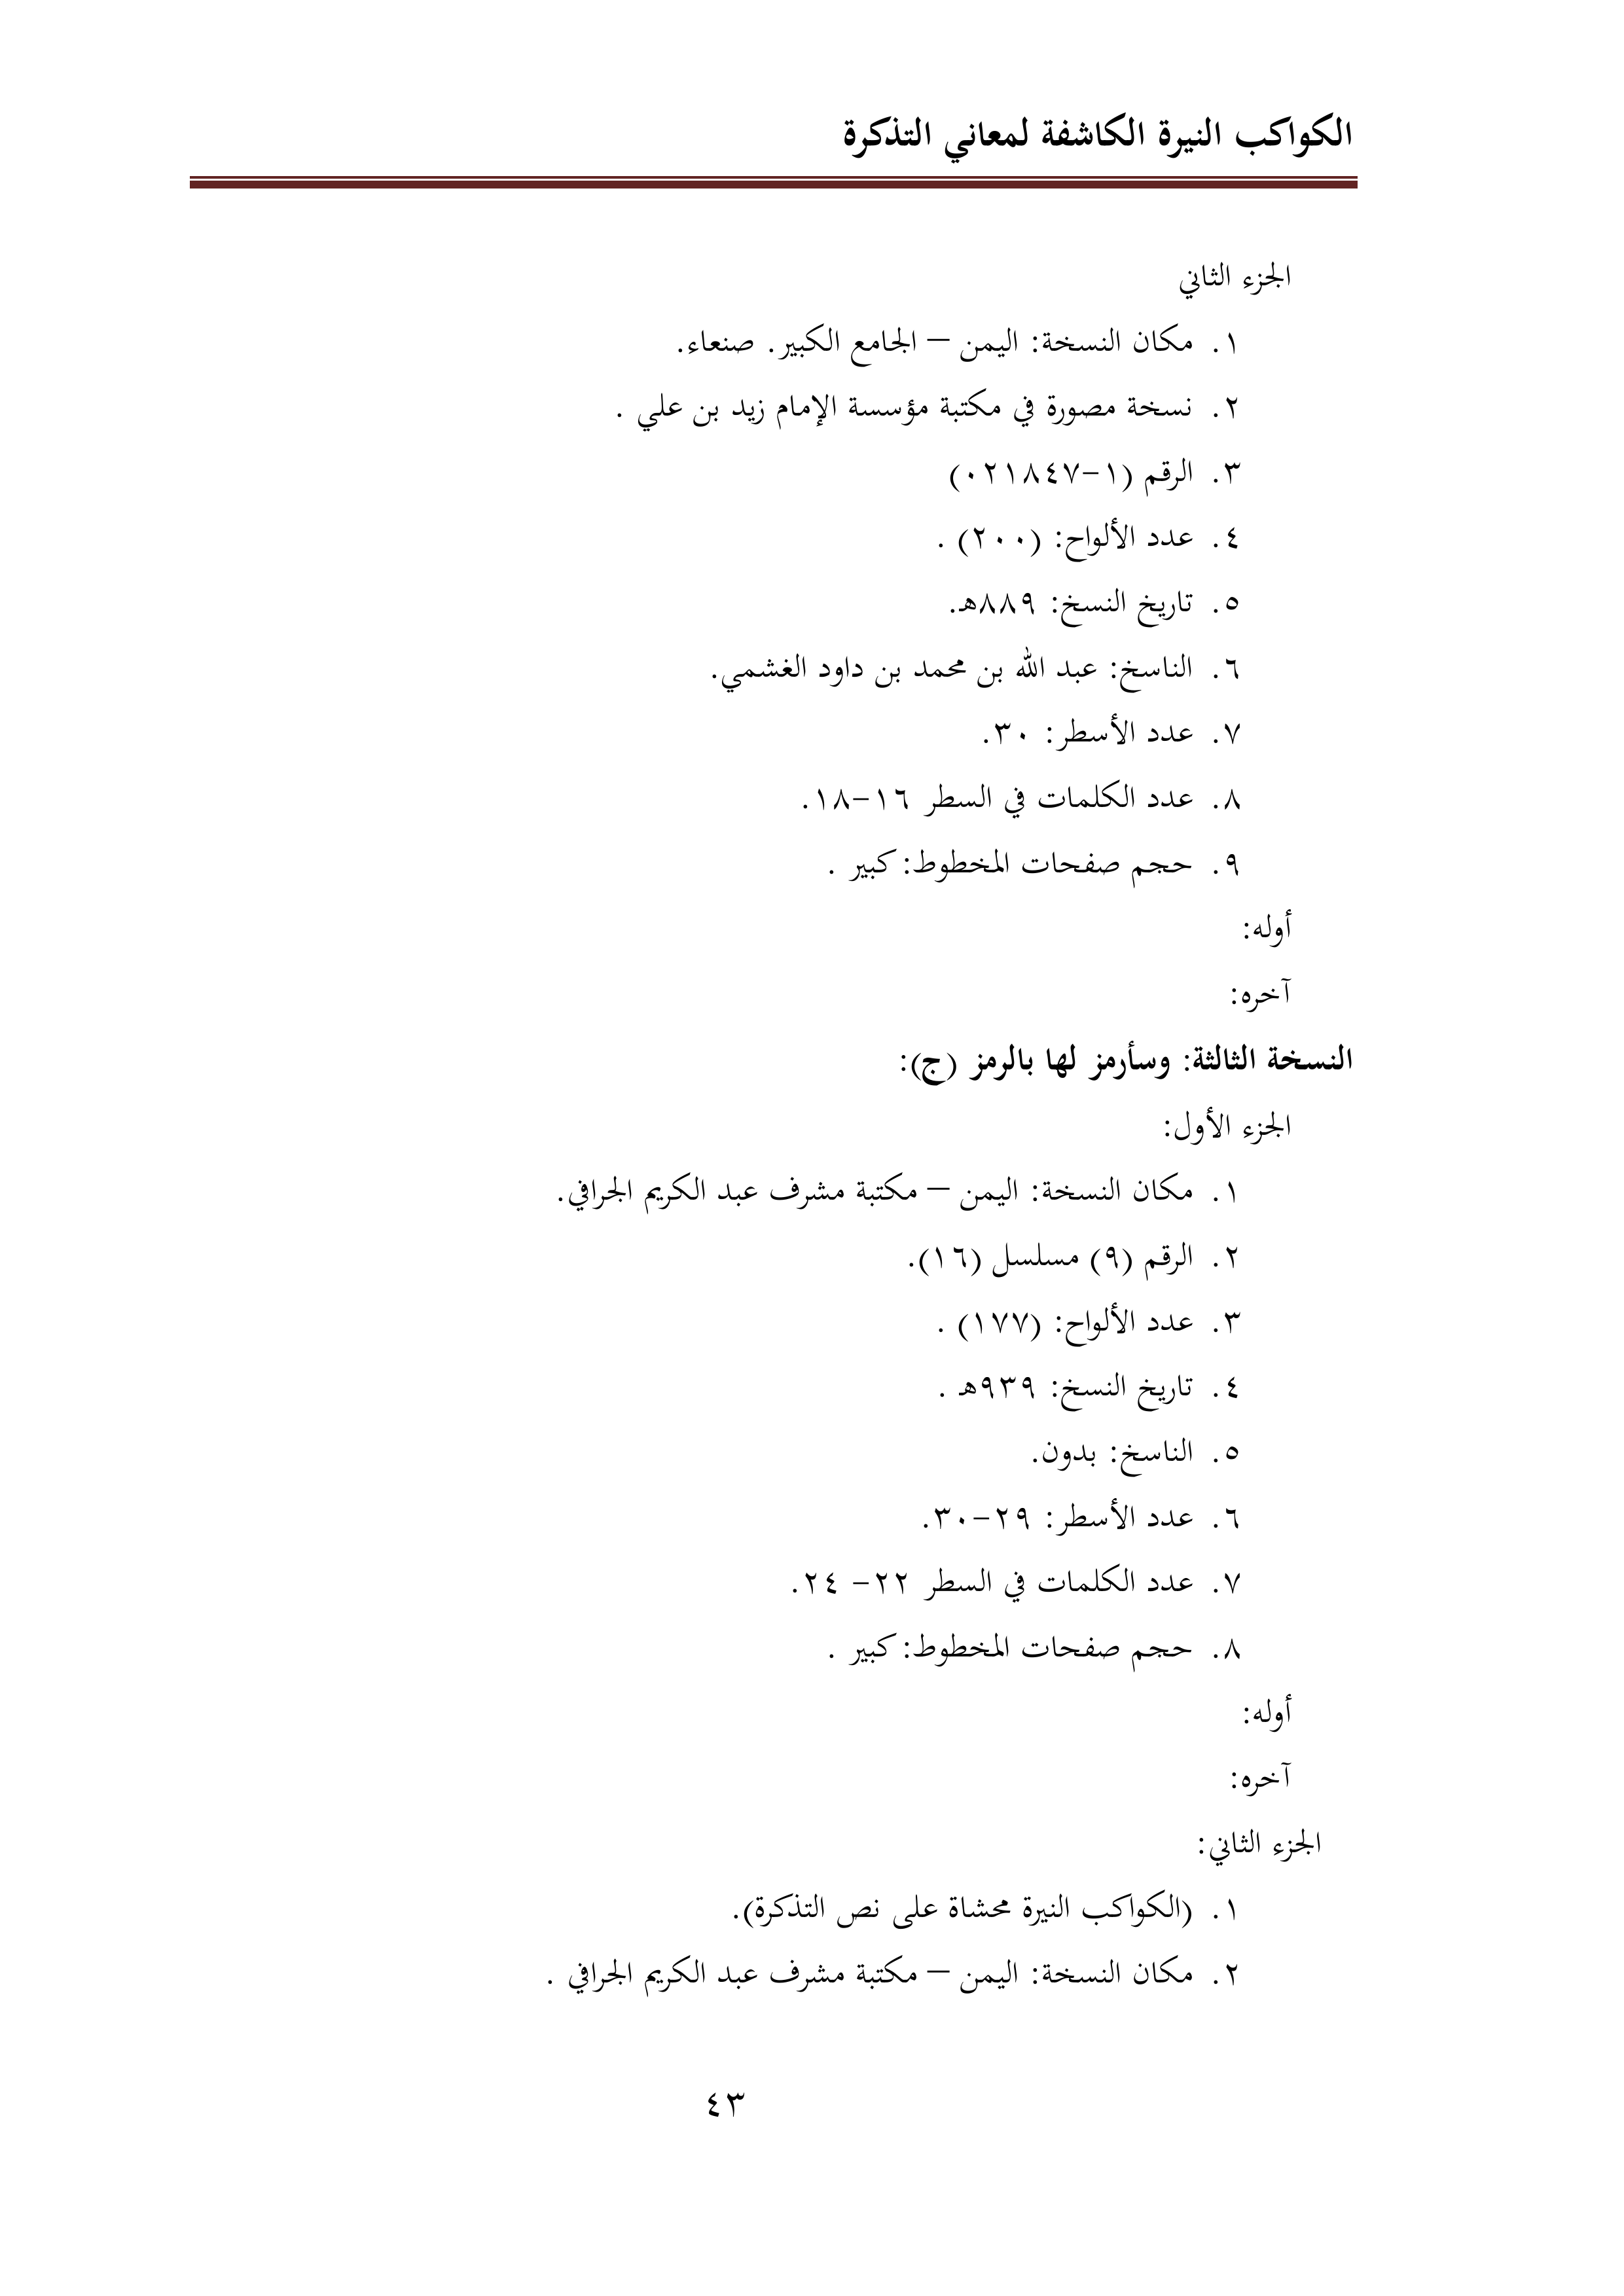 الكواكب النيرة الكاشفة لمعاني التذكرة
الجزء الثاني
١. مكان النسخة: اليمن – الجامع الكبير. صنعاء.
٢. نسخة مصورة في مكتبة مؤسسة الإمام زيد بن علي .
٣. الرقم (١-٠٢١٨٤٧)
٤. عدد الألواح: (٢٠٠) .
٥. تاريخ النسخ: ٨٨٩هـ.
٦. الناسخ: عبد الله بن محمد بن داود الغشمي.
٧. عدد الأسطر: ٣٠.
٨. عدد الكلمات في السطر ١٦-١٨.
٩. حجم صفحات المخطوط: كبير .
أوله:
آخره:
النسخة الثالثة: وسأرمز لها بالرمز (ج):
الجزء الأول:
١. مكان النسخة: اليمن – مكتبة مشرف عبد الكريم الجرافي.
٢. الرقم (٩) مسلسل (١٦).
٣. عدد الألواح: (١٧٧) .
٤. تاريخ النسخ: ٩٣٩هـ .
٥. الناسخ: بدون.
٦. عدد الأسطر: ٢٩-٣٠.
٧. عدد الكلمات في السطر ٢٢- ٢٤.
٨. حجم صفحات المخطوط: كبير .
أوله:
آخره:
الجزء الثاني:
١. (الكواكب النيرة محشاة على نص التذكرة).
٢. مكان النسخة: اليمن – مكتبة مشرف عبد الكريم الجرافي .
٤٣